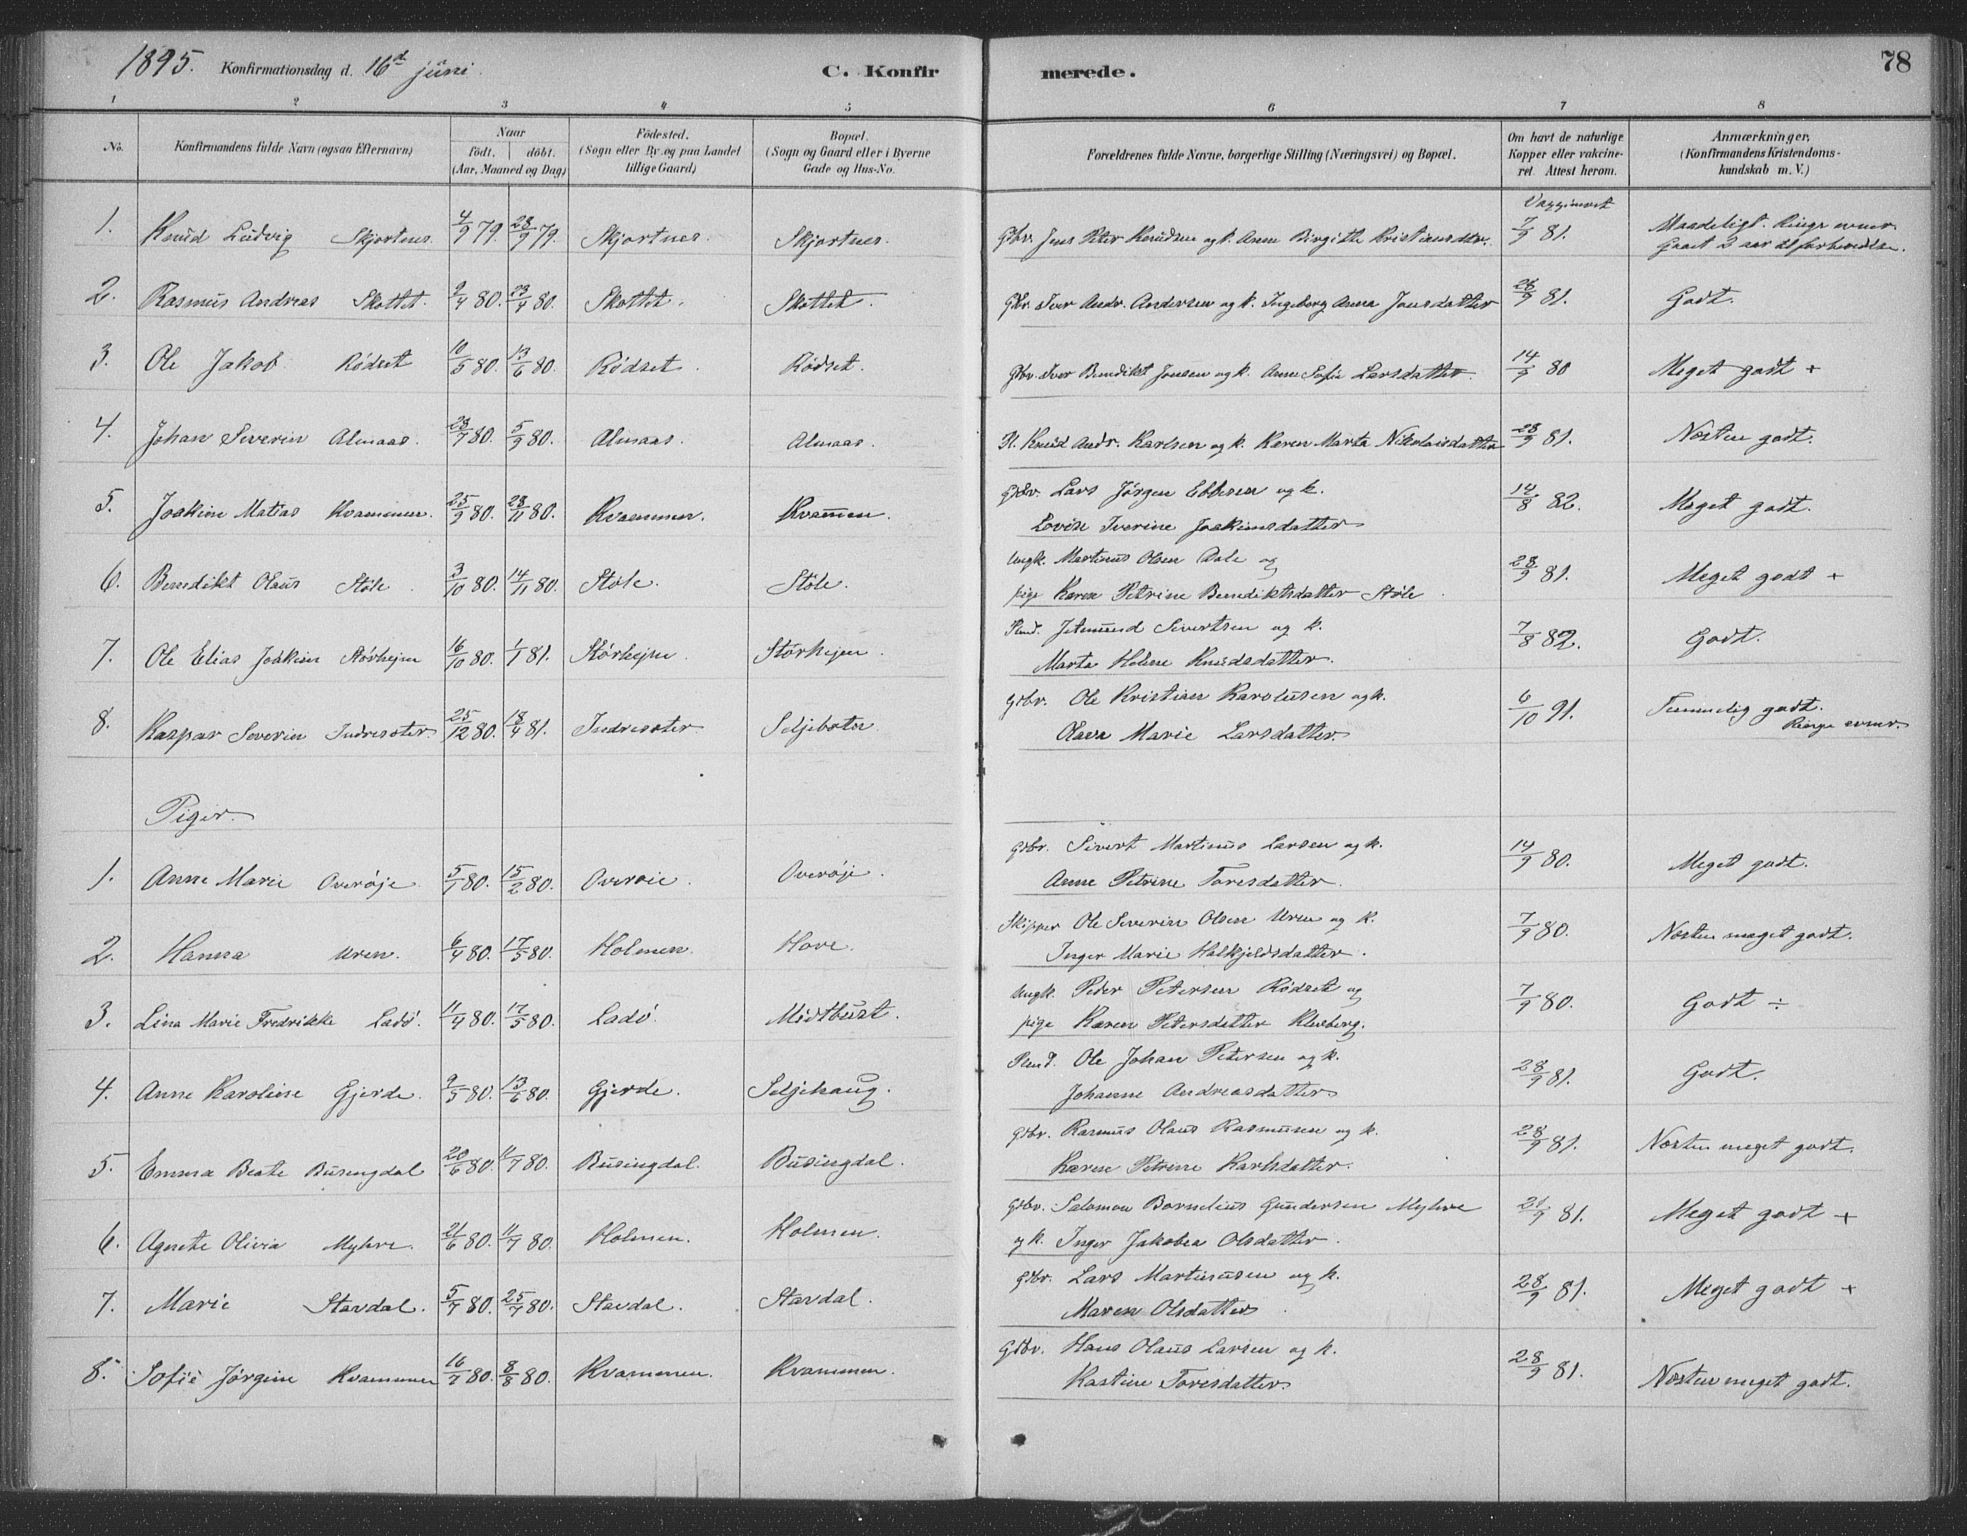 1895. Konfirmationsdag d. 16d juni. C. Konfirmerede. 78
1 2 3 4 5 6 7 8
No. Konfirmandens fulde Navn (ogsaa Efternavn) Naar født, døbt. (Aar, Maaned og Dag) Fødested. (Sogn eller By og paa Landet tillige Gaard) Bopæl. (Sogn og Gaard eller i Byerne Gade og Hus-No. Forældrenes fulde Navne, borgerlige Stilling (Næringsvei) og Bopæl. Om havt de naturlige Kopper eller vakcineret. Attest herom. Anmærkninger. (Konfirmandens Kristendomskundskab m. V.)
1. Knud Ludvig Skjortnes. 4/9 79. 28/9 79. Skjortnes. Skjortnes. Gbr. Jens Peter Knudsen og k. Anne Birgitte Kristiansdter. Vaccineret 7/9 81. Maadeligt. Ringe evner. Gaaet 2 aar til forberedelse.
2. Rasmus Andreas Skottet. 9/4 80. 23/4 80. Skottet. Skottet. Gbr. Iver Andr. Andersen og k. Ingeborg Anna Jonsdatter 28/9 81. Godt.
3. Ole Jakob Rødset 10/5 80. 13/6 80. Rødset. Rødset. Gbr. Iver Bendikt Jonsen og k. Anne Sofie Larsdatter. 14/9 80 Meget godt +
4. Johan Severin Almaas. 23/7 80. 5/9 80. Almaas. Almaas. Knud Andr. Karlsen og k. Karen Marta Nikolaisdatter 28/9 81. Næsten godt.
5. Joakim Matias Kvammen. 25/9 80. 28/11 80. Kvammen. Kvammen. Gbr. Lars Jørgen Ebbesen og k.
Lovise Iverine Joakimsdatter 14/8 82. Meget godt.
6. Bendikt Olaus Støle 3/10 80. 14/11 80. Støle. Støle. Ungk. Martinus Olsen Dale og
pige Karen Petrine Bendiktsdatter Støle. 28/9 81. Meget godt +
7. Ole Elias Joakim Størhejm 16/10 80. 1/1 81. Størhejm. Størhejm. Pladsmd. Jetmund Sivertsen og k.
Marta Helene Knudsdatter. 7/8 82. Godt.
8. Kaspar Severin Indresæter 25/12 80. 18/4 81. Indresæter Seljebotn Gbr. Ole Kristian Karolusen og k.
Olava Marie Larsdatter. 6/10 91. Temmelig godt. Ringe evner.
Piger.
1. Anne Marie Overøje. 5/1 80. 15/2 80. Overøie. Overøje. Gbr. Sivert Martinus Larsen og k.
Anne Petrine Toresdatter. 14/9 80. Meget godt.
2. Hanna Uren. 6/4 80. 17/5 80. Holmen. Hove. Skipper Ole Severin Olsen Uren og k.
Inger Marie Halkjeldsdatter. 7/9 80. Næsten meget godt.
3. Lina Marie Fredrikke Ladø. 11/4 80. 17/5 80. Ladø. Midtbust. Ungk. Peder Petersen Rødset og
pige Karen Petersdatter Kleberg. 7/9 80. Godt ÷
4. Anne Karoline Gjerde. 9/5 80. 13/6 80. Gjerde. Seljehaug. Ole Johan Petersen og k.
Johanne Andreasdatter 28/9 81. Godt.
5. Emma Beate Busengdal 20/6 80. 11/7 80. Busengdal. Busingdal. Gbr. Rasmus Olaus Rasmusen og k.
Karen Petrine Karlsdatter. 28/9 81. Næsten meget godt.
6. Agnete Olivia Myhre. 21/6 80. 11/7 80. Holmen. Holmen. Gbr. Salomon Bornelius Gundersen Myhre
og k. Inger Jakobea Olsdatter. 21/9 81. Meget godt +
7. Marie Stavdal. 5/7 80. 25/7 80. Stavdal. Stavdal. Gbr. Lars Martinusen og k.
Maren Olsdatter 28/9 81. Meget godt +
8. Sofie Jørgine Kvammen 16/7 80. 8/8 80. Kvammen. Kvammen. Gbr. Hans Olaus Larsen og k.
Kastine Toresdatter 28/9 81. Næsten meget godt.